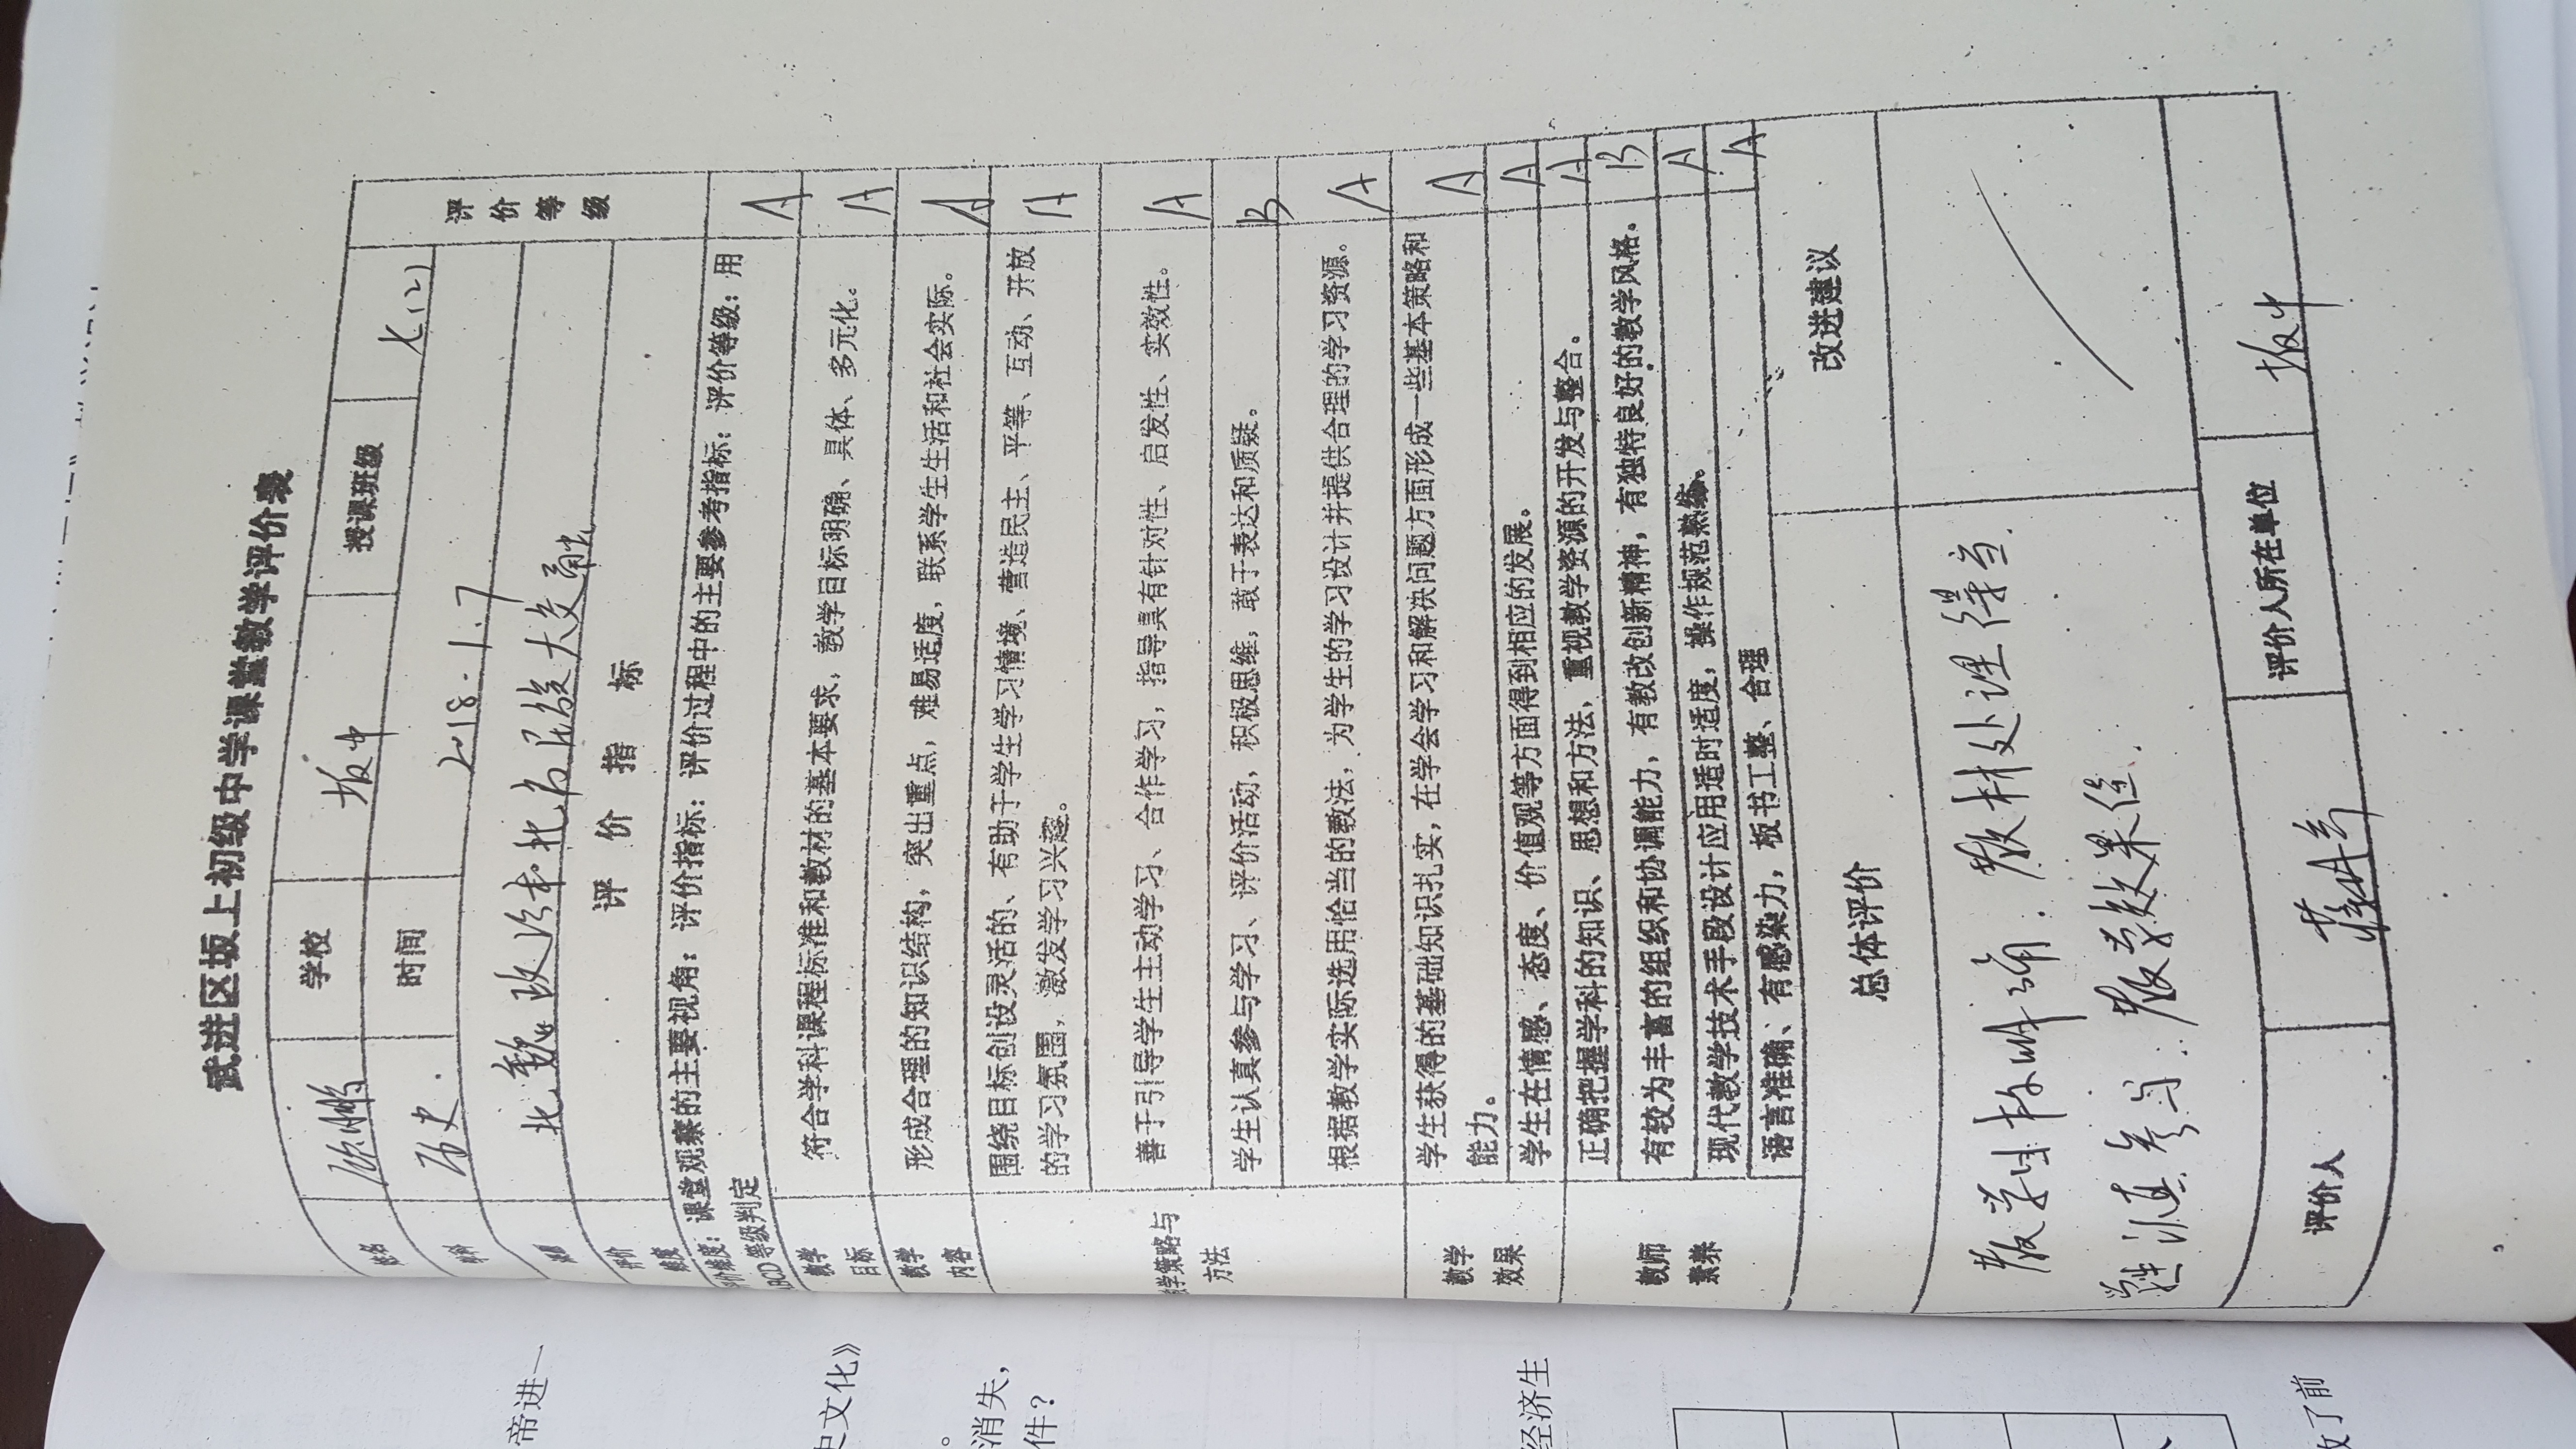 武进区坂上初级中学课堂教学评价表
姓名 学校 坂中 授课班级 七(2) 评价等级
学科 历史 时间 2018.1.7
课题 北魏政治和北方民族大交融
评价维度 评价指标
评价维度：课堂观察的主要视角；评价指标：评价过程中的主要参考指标；评价等级：用
ABCD等级判定 A
教学目标 符合学科课程标准和教材的基本要求，教学目标明确、具体、多元化。 A
教学内容 形成合理的知识结构，突出重点，难易适度，联系学生生活和社会实际。 A
教学策略与方法 围绕目标创设灵活的、有助于学生学习情境、营造民主、平等、互动、开放 A
的学习氛围，激发学习兴趣。
善于引导学生主动学习、合作学习，指导具有针对性、启发性、实效性。 A
学生认真参与学习、评价活动，积极思维，敢于表达和质疑。 B
根据教学实际选用恰当的教法，为学生的学习设计并提供合理的学习资源。 A
教学效果 学生获得的基础知识扎实，在学会学习和解决问题方面形成一些基本策略和 A
能力。
学生在情感、态度、价值观等方面得到相应的发展。 A
教师素养 正确把握学科的知识、思想和方法，重视教学资源的开发与整合。 A
有较为丰富的组织和协调能力，有教改创新精神，有独特良好的教学风格。 B
现代教学技术手段设计应用适时适度，操作规范熟练。 A
语言准确、有感染力，板书工整、合理 A
总体评价 改进建议
教学目标明确，教材处理得当，
学生认真参与，教学效果佳。
评价人 评价人所在单位 坂中
帝进一
史文化》
。
消失，
件？
经济生
了前